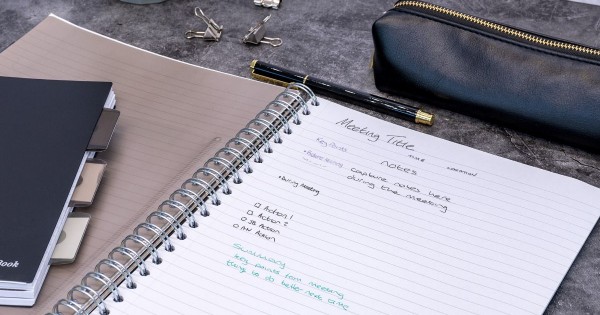 Meeting Title
Key Points
notes
capture notes here
during the meeting
• During Meeting
☐ Action 1
☐ Action 2
☐ Action
☐ Action
Summary
key points from meeting
things to do better next time
Book